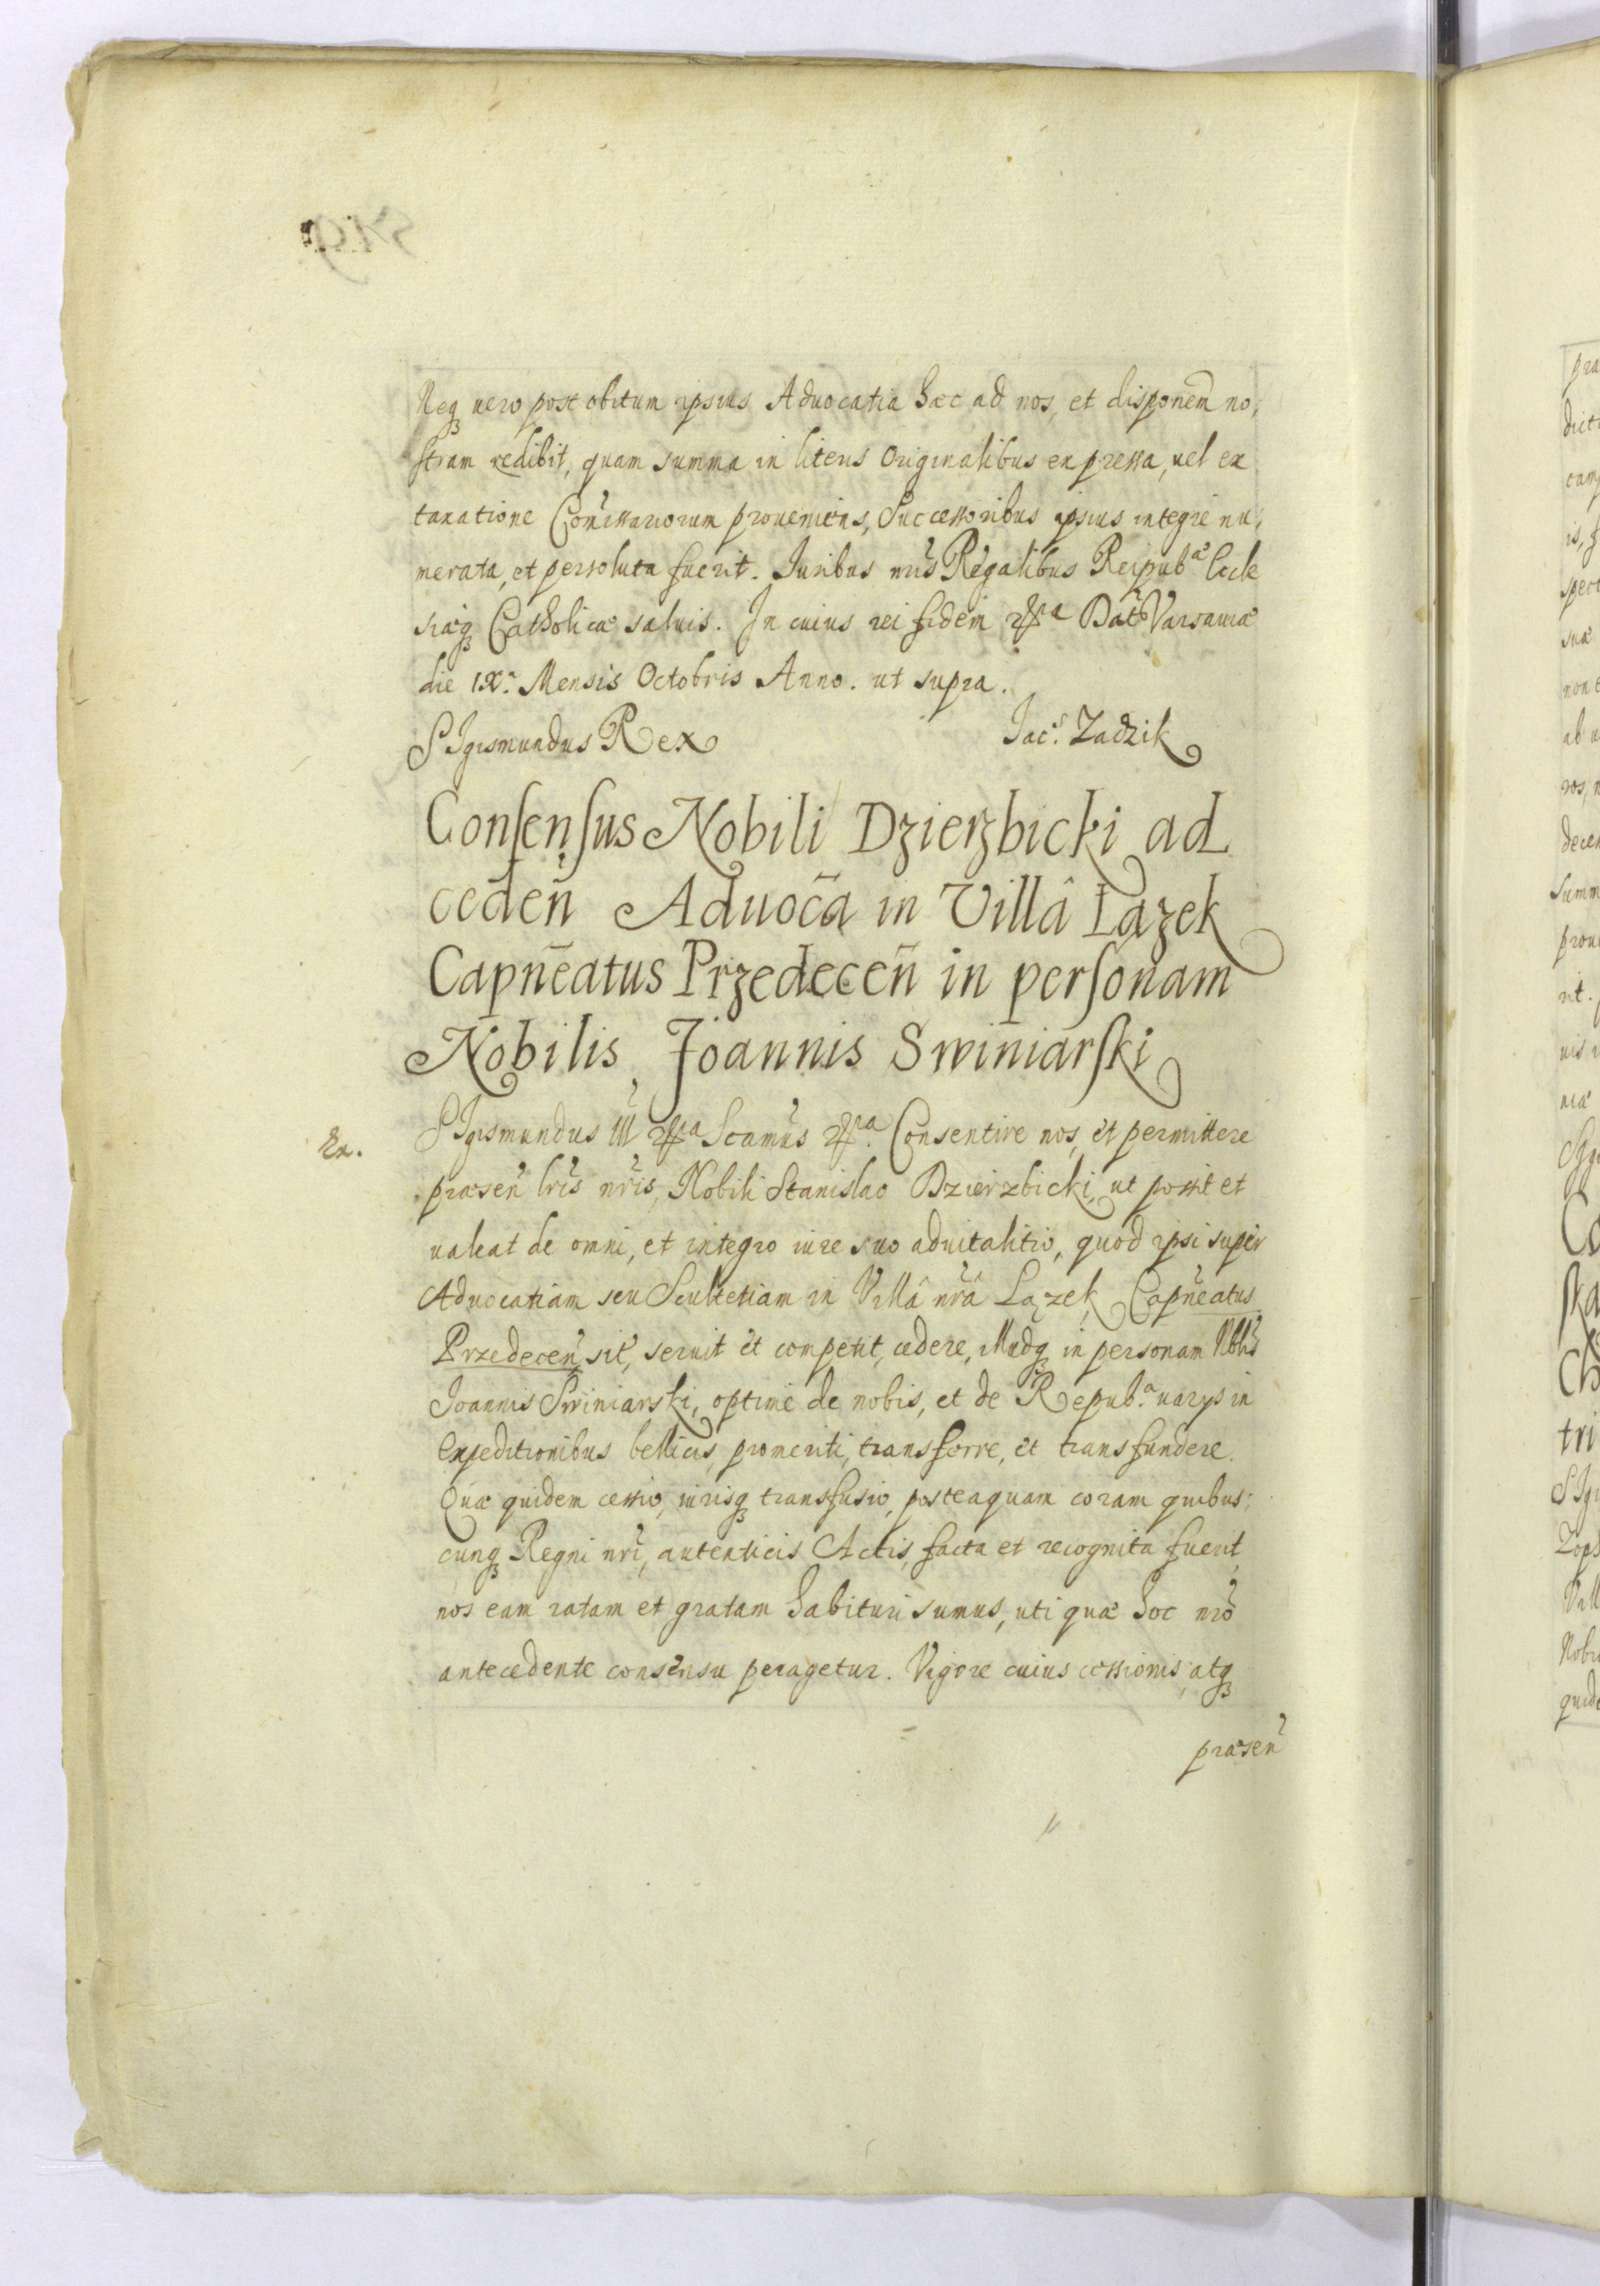 Neq3 uero post obitum ipsius Aduocatia hæc ad nos, et disponem̃ no,
stram redibit, quam summa in literis Originalibus expressa, uel ex
taxatione Com̃issariorum proueniens, Successoribus ipsius integre nu,
merata, et persoluta fuerit. Iuribus nr̃is Regalibus Reipubᵃᵉ Eccle
siæq3 Catholicæ saluis. In cuius rei fidem &ᵃ Dat̃ Varsauiæ
die IXᵃ. Mensis Octobris Anno. ut supra.
SIgismundus Rex Jacˢ. Zadzik
Consensus Nobili Dzierzbicki ad
ceden̄ Aduoc̄a in Villâ Lązek
Capn̄eatus Przedecen̄ in personam
Nobilis Joannis Swiniarski
Ex.
SIgismundus III &ᵃ Scam̃us &ᵃ. Consentire nos, et permittere
præsen̄ lr̃is nr̃is, Nobili Stanislao Dzierzbicki, ut possit et
ualeat de omni, et integro iure suo aduitalitio, quod ipsi super
Aduocatiam seu Scultetiam in Villâ nr̃â Lązek Capn̄eatus
Przedecen̄ sit, seruit et competit, cedere, illudq3 in personam Nblis
Joannis Swiniarski, optime de nobis, et de Repubᵃ. uarys in
Expeditionibus bellicis, promeriti, transferre, et transfundere.
Quæ quidem cessio, iurisq3 transfusio, posteaquam coram quibus,
cunq3 Regni nr̃i, autenticis Actis, facta et recognita fuerit,
nos eam ratam et gratam habituri sumus, uti quæ hoc nr̃o
antecedente consensu peragetur. Vigore cuius cessionis, atq3
præsen̄